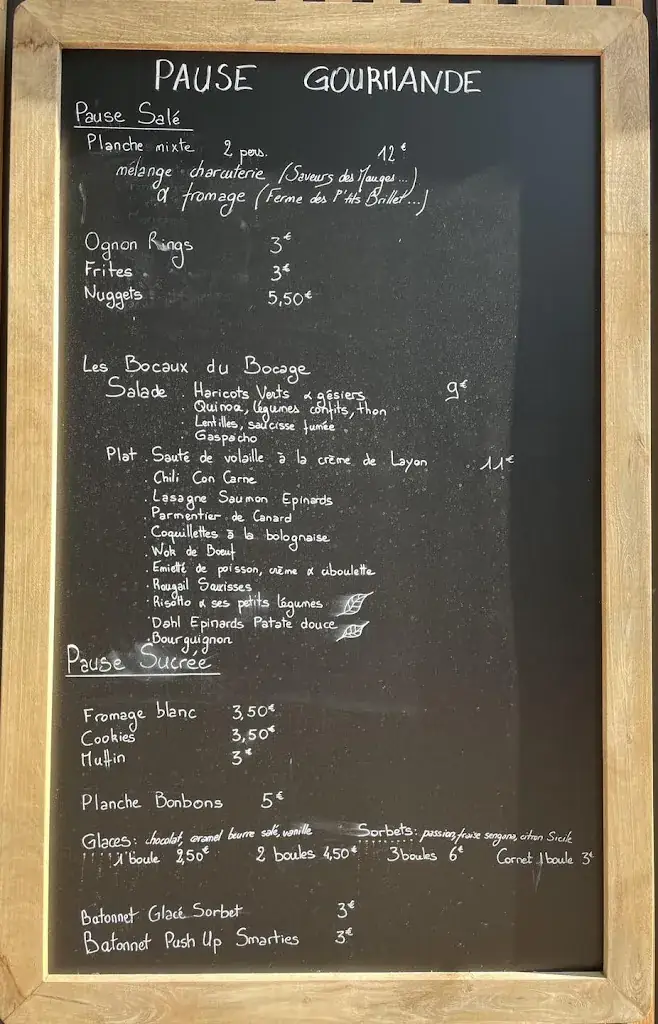 PAUSE GOURMANDE
Pause Salé
Planche mixte 2 pers. 12€
mélange charcuterie (Saveurs des Mauges...)
& fromage (Ferme des P'tits Brillet...)
Ognon Rings 3€
Frites 3€
Nuggets 5,50€
Les Bocaux du Bocage
Salade Haricots Verts & gésiers 9€
. Quinoa, légumes confits, thon
. Lentilles, saucisse fumée
. Gaspacho
Plat Sauté de volaille à la crème de Layon 11€
. Chili Con Carne
. Lasagne Saumon Epinards
. Parmentier de Canard
. Coquillettes à la bolognaise
. Wok de Boeuf
. Emietté de poisson, crème & ciboulette
. Rougail Saucisses
. Risotto & ses petits légumes
. Dahl Epinards Patate douce
. Bourguignon
Pause Sucrée
Fromage blanc 3,50€
Cookies 3,50€
Muffin 3€
Planche Bonbons 5€
Glaces: chocolat, caramel beurre salé, vanille Sorbets: passion, fraise sengana, citron Sicile
1 boule 2,50€ 2 boules 4,50€ 3 boules 6€ Cornet 1 boule 3€
Batonnet Glacé Sorbet 3€
Batonnet Push Up Smarties 3€